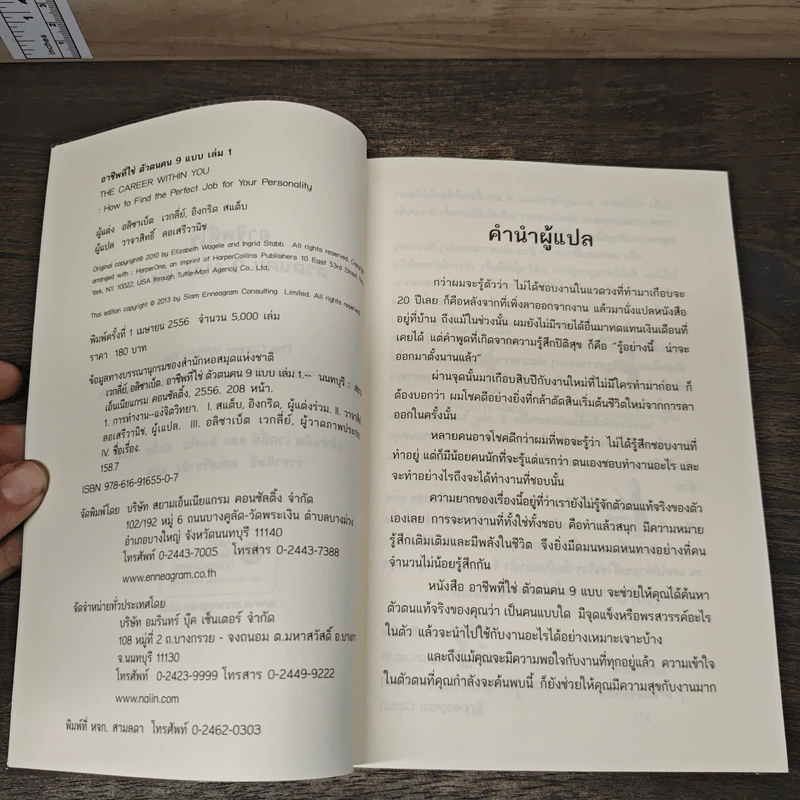 อาชีพที่ใช่ ตัวตนคน 9 แบบ เล่ม 1
THE CAREER WITHIN YOU
: How to Find the Perfect Job for Your Personality
ผู้แต่ง อลิซาเบ็ต เวกลี่ย์, อิงกริด สแต็บ
ผู้แปล วาจาสิทธิ์ ลอเสรีวานิช
Original copyright© 2010 by Elizabeth Wagele and Ingrid Stabb. All rights reserved.
arranged with : HarperOne, an imprint of HarperCollins Publishers 10 East 53rd Street,
York, NY. 10022, USA through Tuttle-Mori Agency Co., Ltd.
Thai edition copyright © 2013 by Siam Enneagram Consulting Limited. All rights reserved.
พิมพ์ครั้งที่ 1 เมษายน 2556 จำนวน 5,000 เล่ม
ราคา 180 บาท
ข้อมูลทางบรรณานุกรมของสำนักหอสมุดแห่งชาติ
เวกลี่ย์, อลิซาเบ็ต. อาชีพที่ใช่ ตัวตนคน 9 แบบ เล่ม 1.-- นนทบุรี :
เอ็นเนียแกรม คอนซัลติ้ง, 2556. 208 หน้า.
1. การทำงาน--แง่จิตวิทยา. I. สแต็บ, อิงกริด, ผู้แต่งร่วม. II.
ลอเสรีวานิช, ผู้แปล. III. อลิซาเบ็ต เวกลี่ย์, ผู้วาดภาพประกอบ
IV. ชื่อเรื่อง.
158.7
ISBN 978-616-91655-0-7
จัดพิมพ์โดย บริษัท สยามเอ็นเนียแกรม คอนซัลติ้ง จำกัด
102/192 หมู่ 6 ถนนบางคูลัด-วัดพระเงิน ตำบลบางม่วง
อำเภอบางใหญ่ จังหวัดนนทบุรี 11140
โทรศัพท์ 0-2443-7005 โทรสาร 0-2443-7388
www.enneagram.co.th
จัดจำหน่ายทั่วประเทศโดย
บริษัท อมรินทร์ บุ๊ค เซ็นเตอร์ จำกัด
108 หมู่ที่ 2 ถ.บางกรวย - จงถนอม ต.มหาสวัสดิ์
จ.นนทบุรี 11130
โทรศัพท์ 0-2423-9999 โทรสาร 0-2449-9222
www.naiin.com
พิมพ์ที่ หจก. สามลดา โทรศัพท์ 0-2462-0303
คำนำผู้แปล
กว่าผมจะรู้ตัวว่า ไม่ได้ชอบงานในแวดวงที่ทำมาเกือบจะ
20 ปีเลย ก็คือหลังจากที่เพิ่งลาออกจากงาน แล้วมานั่งแปลหนังสือ
อยู่ที่บ้าน ถึงแม้ในช่วงนั้น ผมยังไม่มีรายได้อื่นมาทดแทนเงินเดือนที่
เคยได้ แต่คำพูดที่เกิดจากความรู้สึกปิติสุข ก็คือ “รู้อย่างนี้ น่าจะ
ออกมาตั้งนานแล้ว”
ผ่านจุดนั้นมาเกือบสิบปีกับงานใหม่ที่ไม่มีใครทำมาก่อน ก็
ต้องบอกว่า ผมโชคดีอย่างยิ่งที่กล้าตัดสินเริ่มต้นชีวิตใหม่จากการลา
ออกในครั้งนั้น
หลายคนอาจโชคดีกว่าผมที่พอจะรู้ว่า ไม่ได้รู้สึกชอบงานที่
ทำอยู่ แต่ก็มีน้อยคนนักที่จะรู้แต่แรกว่า ตนเองชอบทำงานอะไร และ
จะทำอย่างไรถึงจะได้ทำงานที่ชอบนั้น
ความยากของเรื่องนี้อยู่ที่ว่าเรายังไม่รู้จักตัวตนแท้จริงของตัว
เองเลย การจะหางานที่ทั้งใช่ทั้งชอบ คือทำแล้วสนุก มีความหมาย
รู้สึกเติมเติมและมีพลังในชีวิต จึงยิ่งมืดมนหมดหนทางอย่างที่คน
จำนวนไม่น้อยรู้สึกกัน
หนังสือ อาชีพที่ใช่ ตัวตนคน 9 แบบ จะช่วยให้คุณได้ค้นหา
ตัวตนแท้จริงของคุณว่า เป็นคนแบบใด มีจุดแข็งหรือพรสวรรค์อะไร
ในตัว แล้วจะนำไปใช้กับงานอะไรได้อย่างเหมาะเจาะบ้าง
และถึงแม้คุณจะมีความพอใจกับงานที่ทุกอยู่แล้ว ความเข้าใจ
ในตัวตนที่คุณกำลังจะค้นพบนี้ ก็ยังช่วยให้คุณมีความสุขกับงานมาก